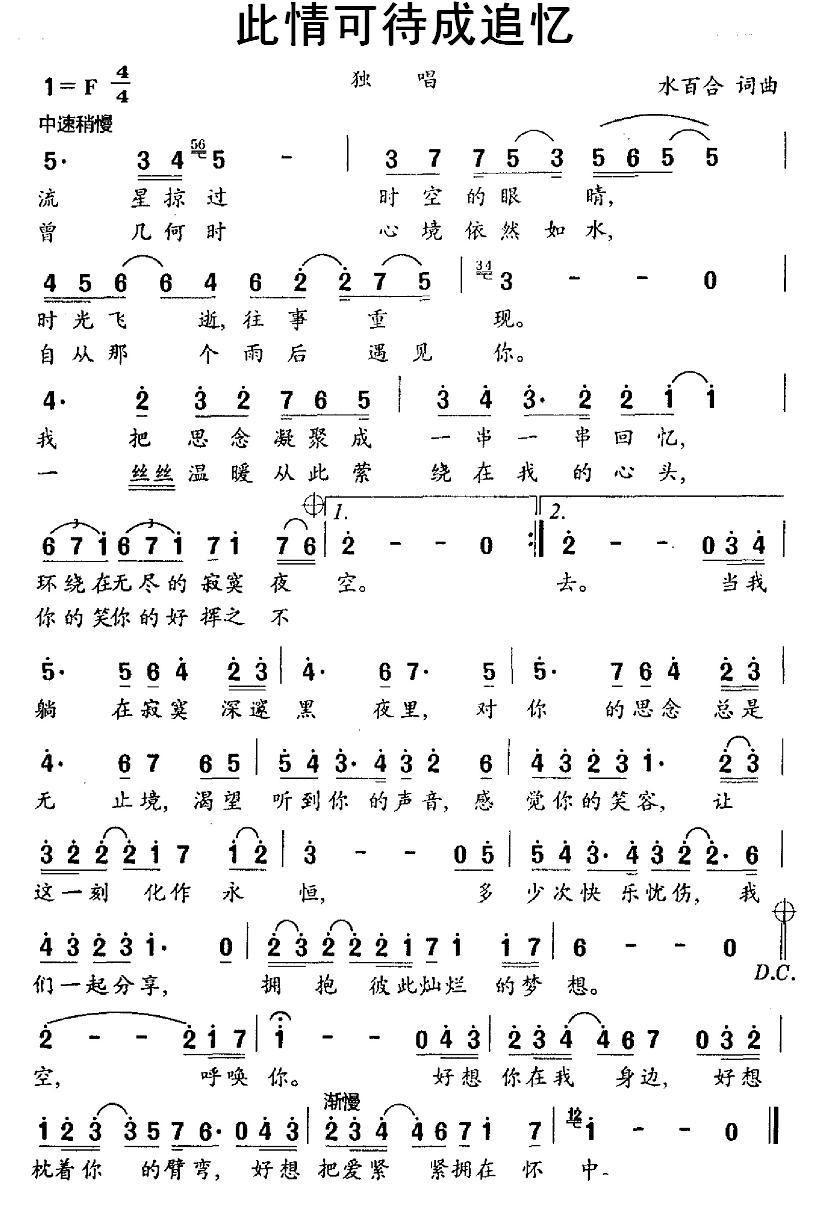 此情可待成追忆
1=F 4/4 独 唱 水百合 词曲
中速稍慢
5· 3 4 56 5 - | 3 7 7 5 3 5 6 5 5 |
流 星掠过 时空的眼 睛,
曾 几何时 心境依然如水,
4 5 6 6 4 6 2 2 7 5 | 34 3 - - 0 |
时光飞 逝,往事 重 现。
自从那 个雨后 遇见 你。
4· 2 3 2 7 6 5 | 3 4 3· 2 2 1 1 |
我 把思念凝聚成 一串一 串回忆,
一 丝丝温暖从此萦 绕在我 的心头,
1. 2.
3 3
6 7 1 6 7 1 7 1 7 6 | 2 - - 0 :| 2 - - 0 3 4 |
环绕在无尽的寂寞夜 空。 去。 当我
你的笑你的好挥之 不
5· 5 6 4 2 3 | 4· 6 7· 5 | 5· 7 6 4 2 3 |
躺 在寂寞深邃黑 夜里, 对你 的思念总是
4· 6 7 6 5 | 5 4 3· 4 3 2 6 | 4 3 2 3 1· 2 3 |
无 止境, 渴望 听到你 的声音,感 觉你的笑容, 让
3 2 2 2 1 7 1 2 | 3 - - 0 5 | 5 4 3· 4 3 2 2· 6 |
这一刻 化作 永 恒, 多 少次快 乐忧伤, 我
4 3 2 3 1· 0 | 2 3 2 2 2 1 7 1 1 7 | 6 - - 0
们一起分享, 拥 抱 彼此灿烂 的梦 想。
D.C.
2 - - 2 1 7 | 1 - - 0 4 3 | 2 3 4 4 6 7 0 3 2 |
空, 呼唤 你。 好想 你在我 身边, 好想
渐慢
1 2 3 3 5 7 6· 0 4 3 | 2 3 4 4 6 7 1 7 | 12 1 - - 0 ||
枕着你 的臂弯, 好想 把爱紧 紧拥在 怀 中。